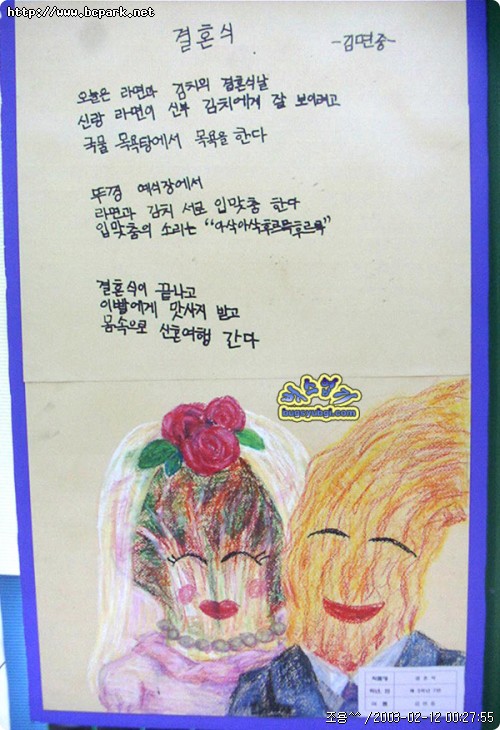 http://www.bcpark.net
결혼식
-김면중-
오늘은 라면과 김치의 결혼식날
신랑 라면이 신부 김치에게 잘 보이려고
국물 목욕탕에서 목욕을 한다
뚜껑 예식장에서
라면과 김치 서로 입맞춤 한다
입맞춤의 소리는 "아삭아삭후르륵후르륵"
결혼식이 끝나고
이빨에게 맛사지 받고
몸속으로 신혼여행 간다
bugsyuhgi.com
조용^^ / 2003-02-12 00:27:55